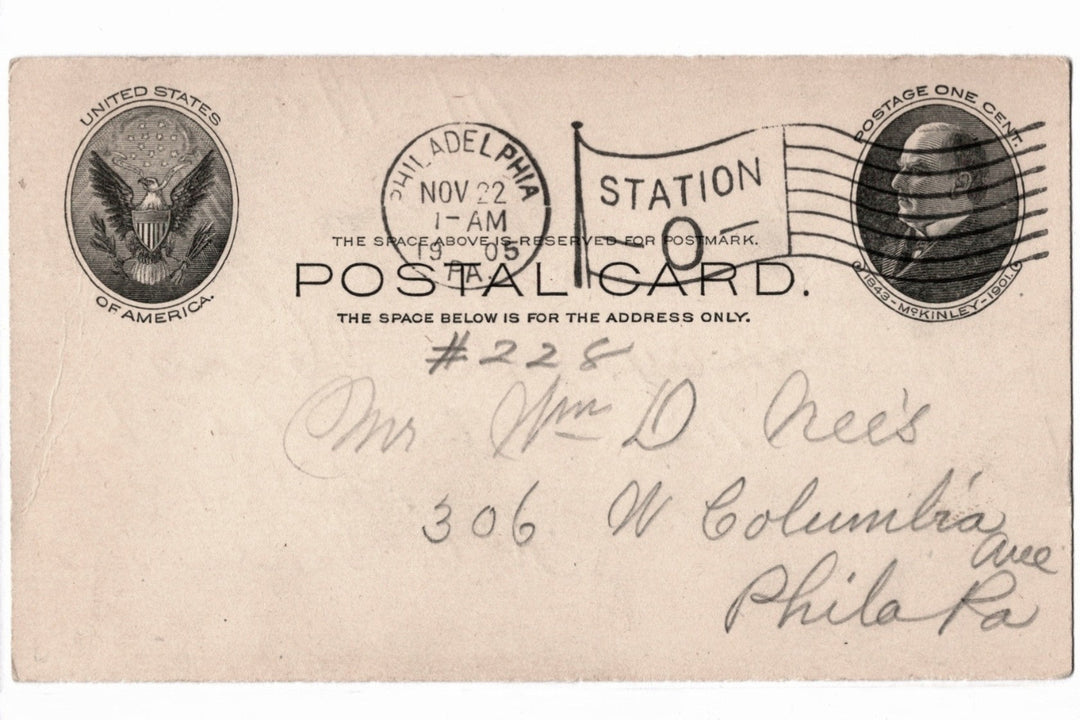 UNITED STATES
OF AMERICA.
PHILADELPHIA
NOV 22
1-AM
19 05
PA.
STATION
-O-
POSTAGE ONE CENT.
1843-McKINLEY-1901.
THE SPACE ABOVE IS RESERVED FOR POSTMARK.
POSTAL CARD.
THE SPACE BELOW IS FOR THE ADDRESS ONLY.
#228
Mr Wm D Nee's
306 W Columbia
Ave
Phila Pa